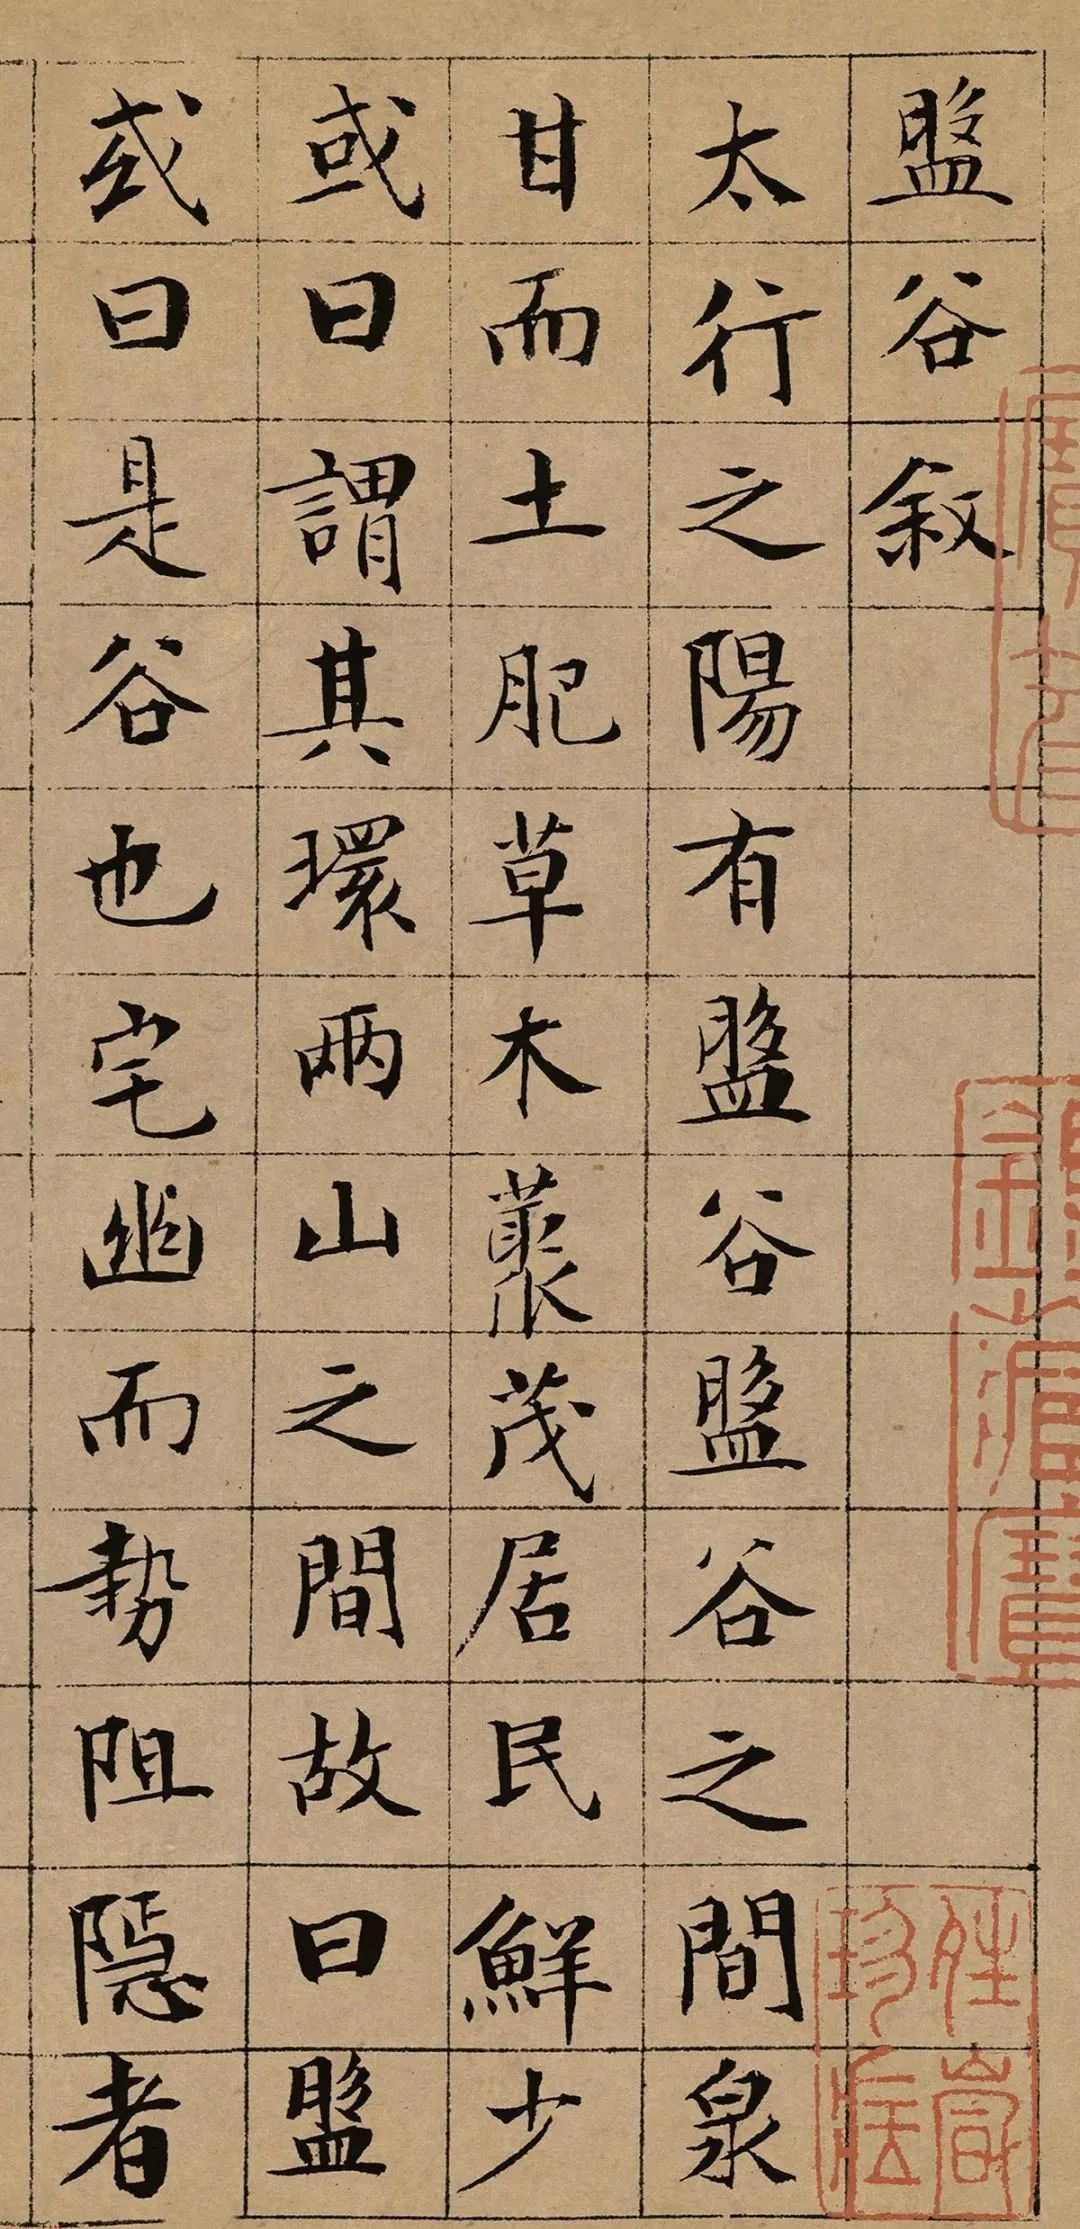 盤谷敘
太行之陽有盤谷盤谷之間泉
甘而土肥草木蘩茂居民鮮少
或曰謂其環兩山之間故曰盤
或曰是谷也宅幽而勢阻隱者